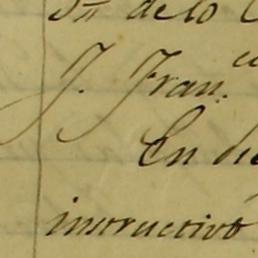 de lo
J. Fran.
En di
instructivo